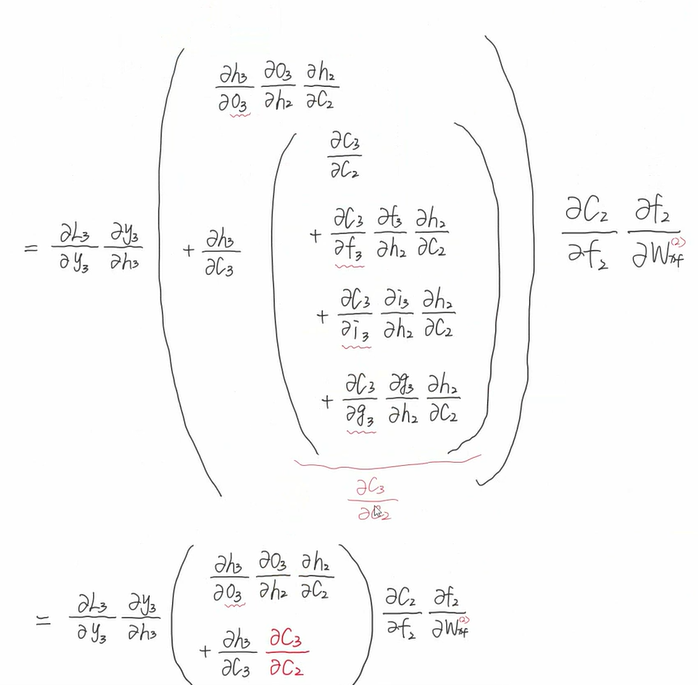 = ∂L₃/∂y₃ ∂y₃/∂h₃ ( ∂h₃/∂o₃ ∂o₃/∂h₂ ∂h₂/∂C₂
+ ∂h₃/∂C₃ ( ∂C₃/∂C₂
+ ∂C₃/∂f₃ ∂f₃/∂h₂ ∂h₂/∂C₂
+ ∂C₃/∂i₃ ∂i₃/∂h₂ ∂h₂/∂C₂
+ ∂C₃/∂g₃ ∂g₃/∂h₂ ∂h₂/∂C₂ ) ) ∂C₂/∂f₂ ∂f₂/∂W_xf^(2)
∂C₃/∂C₂
= ∂L₃/∂y₃ ∂y₃/∂h₃ ( ∂h₃/∂o₃ ∂o₃/∂h₂ ∂h₂/∂C₂
+ ∂h₃/∂C₃ ∂C₃/∂C₂ ) ∂C₂/∂f₂ ∂f₂/∂W_xf^(2)